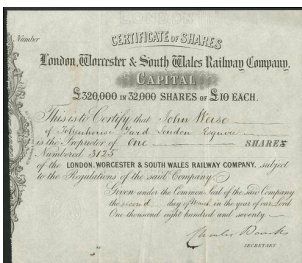 Number
CERTIFICATE OF SHARES
London, Worcester & South Wales Railway Company,
CAPITAL
£320,000 IN 32,000 SHARES OF £10 EACH.
This is to Certify that John
of London Esquire
is the Proprietor of One SHARES
Numbered 3125
of the LONDON, WORCESTER & SOUTH WALES RAILWAY COMPANY, subject
to the Regulations of the said Company.
Given under the Common Seal of the said Company
the second day of in the year of our Lord
One thousand eight hundred and seventy
Charles
SECRETARY